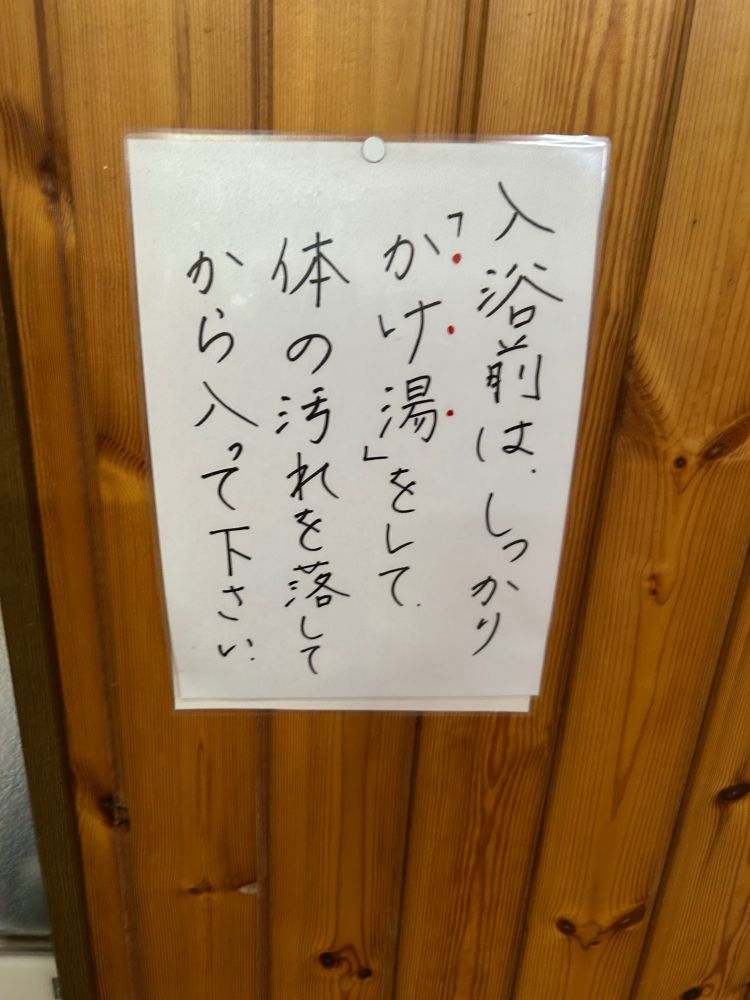 入浴前は、しっかり
「かけ湯」をして、
体の汚れを落して
から入って下さい。